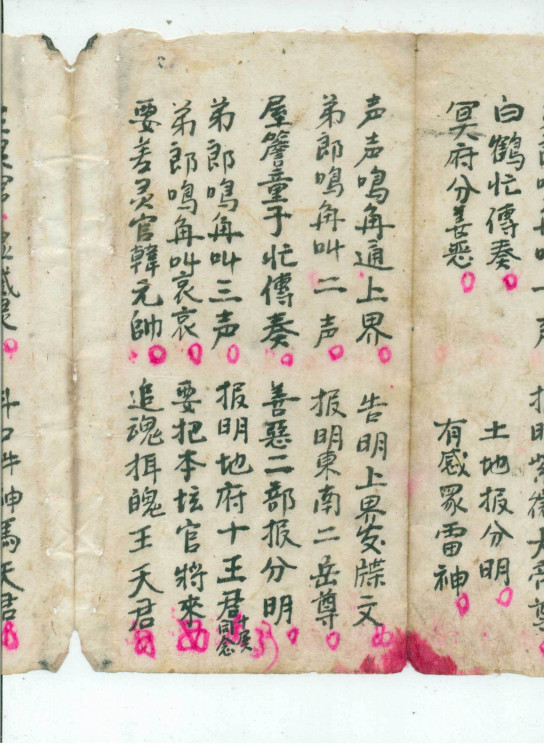 鳴角叫一声 报明紫微大帝尊
白鶴忙傳奏 土地报分明
冥府分善恶 有感眾雷神
声声鳴角通上界 告明上界发牒文
弟郎鳴角叫二声 报明東南二岳尊
屋簷童子忙傳奏 善惡二部报分明
弟郎鳴角叫三声 报明地府十王君 同念
弟郎鳴角叫哀哀 要把本坛官將来
要差灵官韓元帥 追魂魄王天君
神馬天君